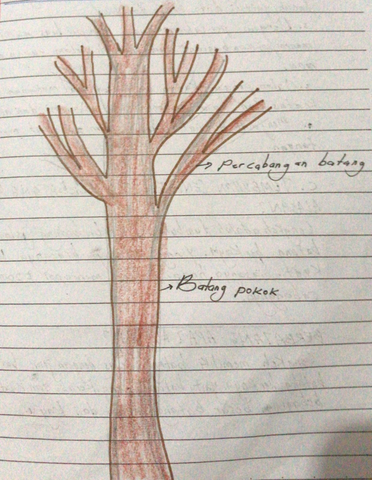 Percabangan batang
Batang pokok